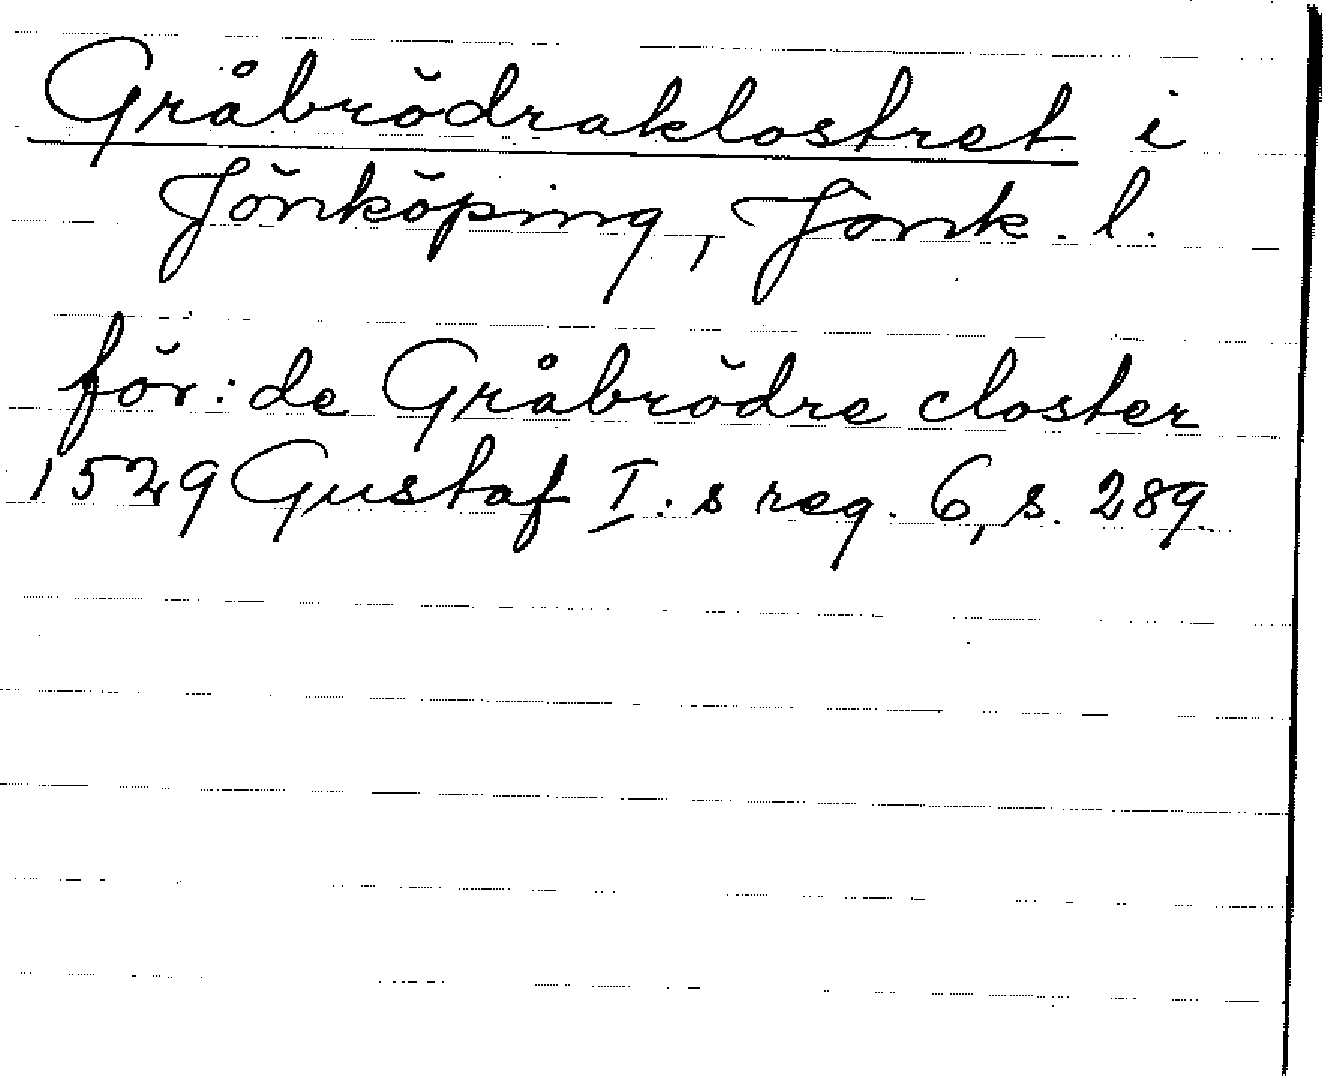 Gråbrödraklostret i
Jönköping, Jönk. l.
för: de Gråbrödre closter
1529 Gustaf I:s reg. 6, s. 289.